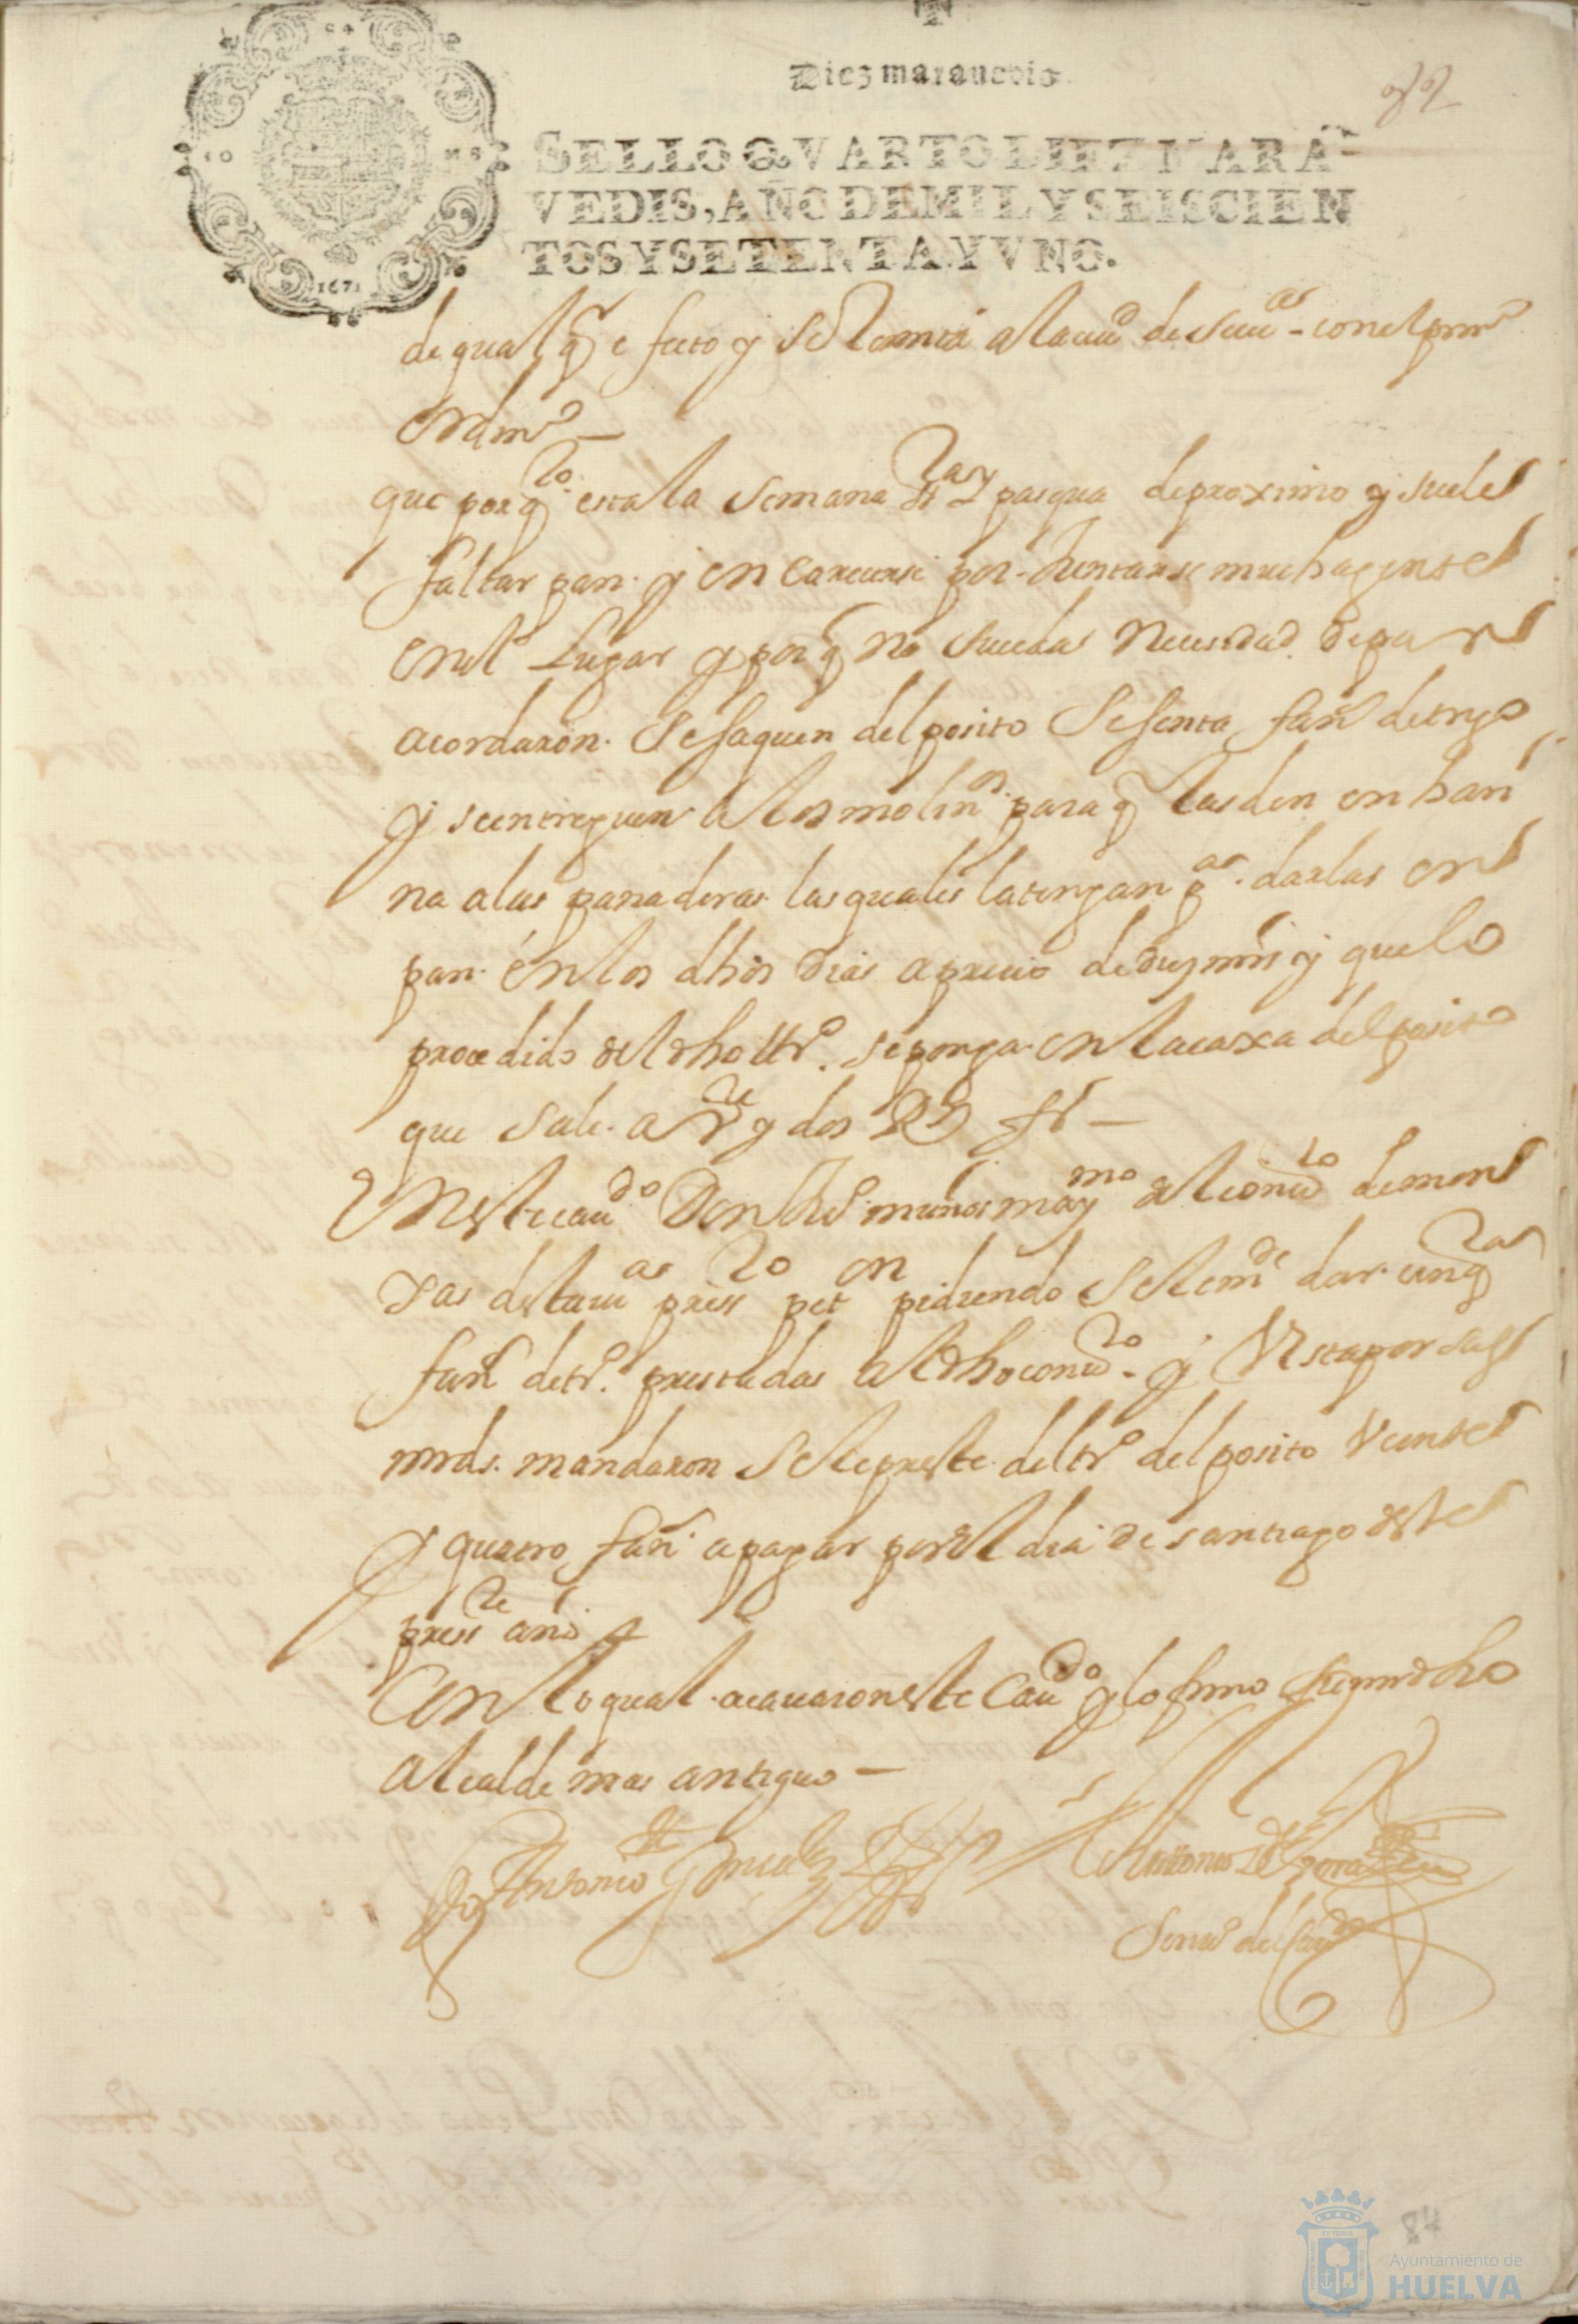 Diez marauedis
82
SELLO QVARTO DIEZ MARA-
VEDIS, AÑO DE MIL Y SEISCIEN
TOS Y SETENTA Y VNO.
1671
de qualq.r efecto y se le
con el prim.o
que por q.to esta la semana s.ta y pasqua de proximo q suele
faltar pan y encarecerse por juntarse mucha gente
en el lugar y por q no suceda necesidad de pan
acordaron se saquen del posito sesenta fan.s de trigo
y se entreguen a los molin.os para q las den en hari
na a las panaderas las quales la tengan p.a darlas en
pan en los dhos dias a precio de diez mrs y que lo
procedido del dho tr.o se ponga en la caxa del posito
que sale a v.te y dos R.s f.a —
En este cau.do Don Ju.o muños may.mo del conv.to de mon
xas desta presento pet.on pidiendo se le m.de dar cinq.ta
fan.s de tr.o prestadas al dho conu.to y Vista por sus
mrds. mandaron se le preste del tr.o del posito Veinte
y quatro fan.s a pagar por el dia de santiago deste
pres.te año
Con lo qual acauaron este Cau.do y lo firmo su md dho
alcalde mas antiguo —
Antonio
Antonio de
Scriu.o del cau.do
84
Ayuntamiento de
HUELVA